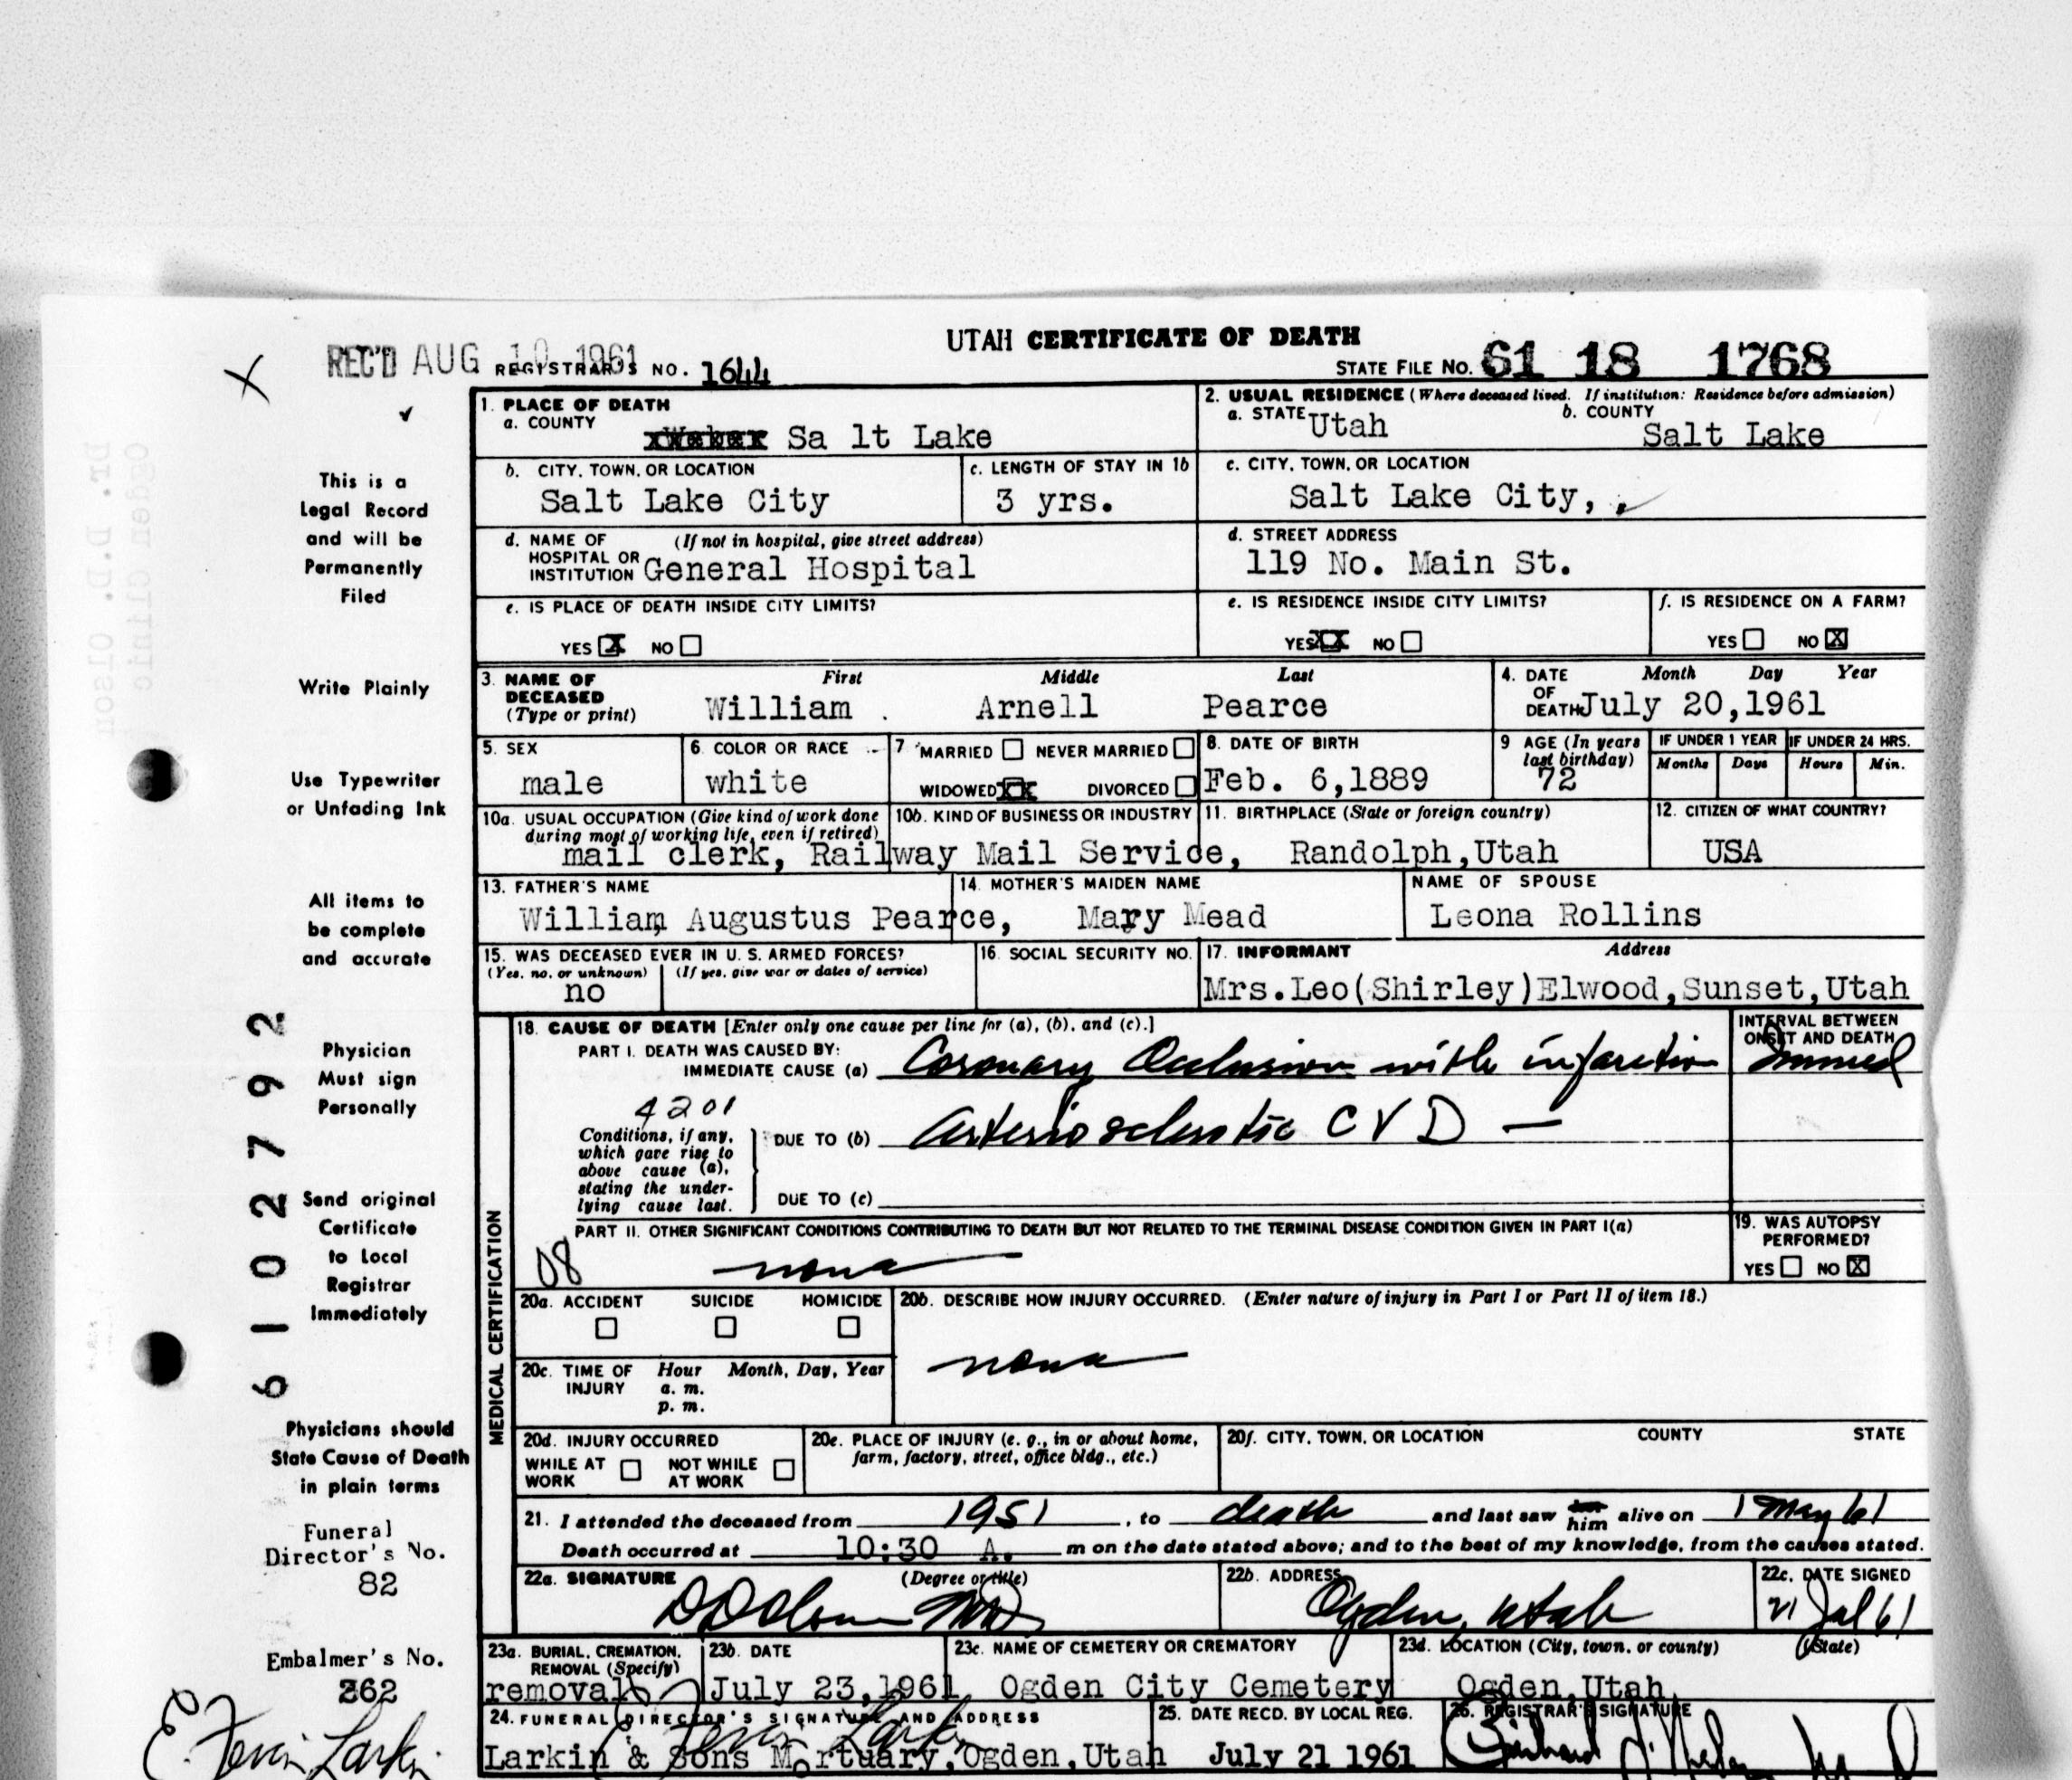 UTAH CERTIFICATE OF DEATH
REC'D AUG 10 1961
REGISTRAR'S NO. 1644
STATE FILE NO. 61 18 1768
1. PLACE OF DEATH
a. COUNTY
Sa lt Lake
2. USUAL RESIDENCE (Where deceased lived. If institution: Residence before admission)
a. STATE Utah
b. COUNTY Salt Lake
b. CITY, TOWN, OR LOCATION
Salt Lake City
c. LENGTH OF STAY IN 1b
3 yrs.
c. CITY, TOWN, OR LOCATION
Salt Lake City, ,
d. NAME OF (If not in hospital, give street address)
HOSPITAL OR
INSTITUTION General Hospital
d. STREET ADDRESS
119 No. Main St.
e. IS PLACE OF DEATH INSIDE CITY LIMITS?
YES X NO
e. IS RESIDENCE INSIDE CITY LIMITS?
YES XX NO
f. IS RESIDENCE ON A FARM?
YES NO X
3. NAME OF DECEASED (Type or print)
First Middle Last
William Arnell Pearce
4. DATE OF DEATH Month Day Year
July 20,1961
5. SEX
male
6. COLOR OR RACE
white
7 MARRIED NEVER MARRIED
WIDOWED XX DIVORCED
8. DATE OF BIRTH
Feb. 6,1889
9 AGE (In years last birthday)
72
IF UNDER 1 YEAR IF UNDER 24 HRS.
Months Days Hours Min.
10a. USUAL OCCUPATION (Give kind of work done
during most of working life, even if retired)
10b. KIND OF BUSINESS OR INDUSTRY
mail clerk, Railway Mail Service,
11. BIRTHPLACE (State or foreign country)
Randolph,Utah
12. CITIZEN OF WHAT COUNTRY?
USA
13. FATHER'S NAME
William Augustus Pearce,
14. MOTHER'S MAIDEN NAME
Mary Mead
NAME OF SPOUSE
Leona Rollins
15. WAS DECEASED EVER IN U. S. ARMED FORCES?
(Yes, no, or unknown) (If yes, give war or dates of service)
no
16. SOCIAL SECURITY NO.
17. INFORMANT Address
Mrs.Leo(Shirley)Elwood,Sunset,Utah
MEDICAL CERTIFICATION
18. CAUSE OF DEATH [Enter only one cause per line for (a), (b), and (c).]
INTERVAL BETWEEN
ONSET AND DEATH
PART I. DEATH WAS CAUSED BY:
IMMEDIATE CAUSE (a) Coronary Occlusion with infarction Immed
4201
Conditions, if any,
which gave rise to
above cause (a),
stating the under-
lying cause last.
DUE TO (b) Arteriosclerotic CVD —
DUE TO (c)
PART II. OTHER SIGNIFICANT CONDITIONS CONTRIBUTING TO DEATH BUT NOT RELATED TO THE TERMINAL DISEASE CONDITION GIVEN IN PART I(a)
08 none
19. WAS AUTOPSY
PERFORMED?
YES NO X
20a. ACCIDENT SUICIDE HOMICIDE
20b. DESCRIBE HOW INJURY OCCURRED. (Enter nature of injury in Part I or Part II of item 18.)
none
20c. TIME OF INJURY Hour Month, Day, Year
a. m.
p. m.
20d. INJURY OCCURRED
WHILE AT WORK NOT WHILE AT WORK
20e. PLACE OF INJURY (e. g., in or about home,
farm, factory, street, office bldg., etc.)
20f. CITY, TOWN, OR LOCATION COUNTY STATE
21. I attended the deceased from 1951, to death and last saw him alive on 1 May 61
Death occurred at 10:30 A. m on the date stated above; and to the best of my knowledge, from the causes stated.
22a. SIGNATURE (Degree or title)
D D Olson MD
22b. ADDRESS
Ogden, Utah
22c. DATE SIGNED
21 Jul 61
23a. BURIAL, CREMATION,
REMOVAL (Specify)
removal
23b. DATE
July 23,1961
23c. NAME OF CEMETERY OR CREMATORY
Ogden City Cemetery
23d. LOCATION (City, town, or county) (State)
Ogden,Utah
24. FUNERAL DIRECTOR'S SIGNATURE AND ADDRESS
Larkin & Sons Mortuary,Ogden,Utah
25. DATE RECD. BY LOCAL REG.
July 21 1961
26. REGISTRAR'S SIGNATURE
This is a
Legal Record
and will be
Permanently
Filed
Write Plainly
Use Typewriter
or Unfading Ink
All items to
be complete
and accurate
Physician
Must sign
Personally
Send original
Certificate
to Local
Registrar
Immediately
Physicians should
State Cause of Death
in plain terms
Funeral
Director's No.
82
Embalmer's No.
262
61027792
Dr. D.D. Olson
Ogden Clinic